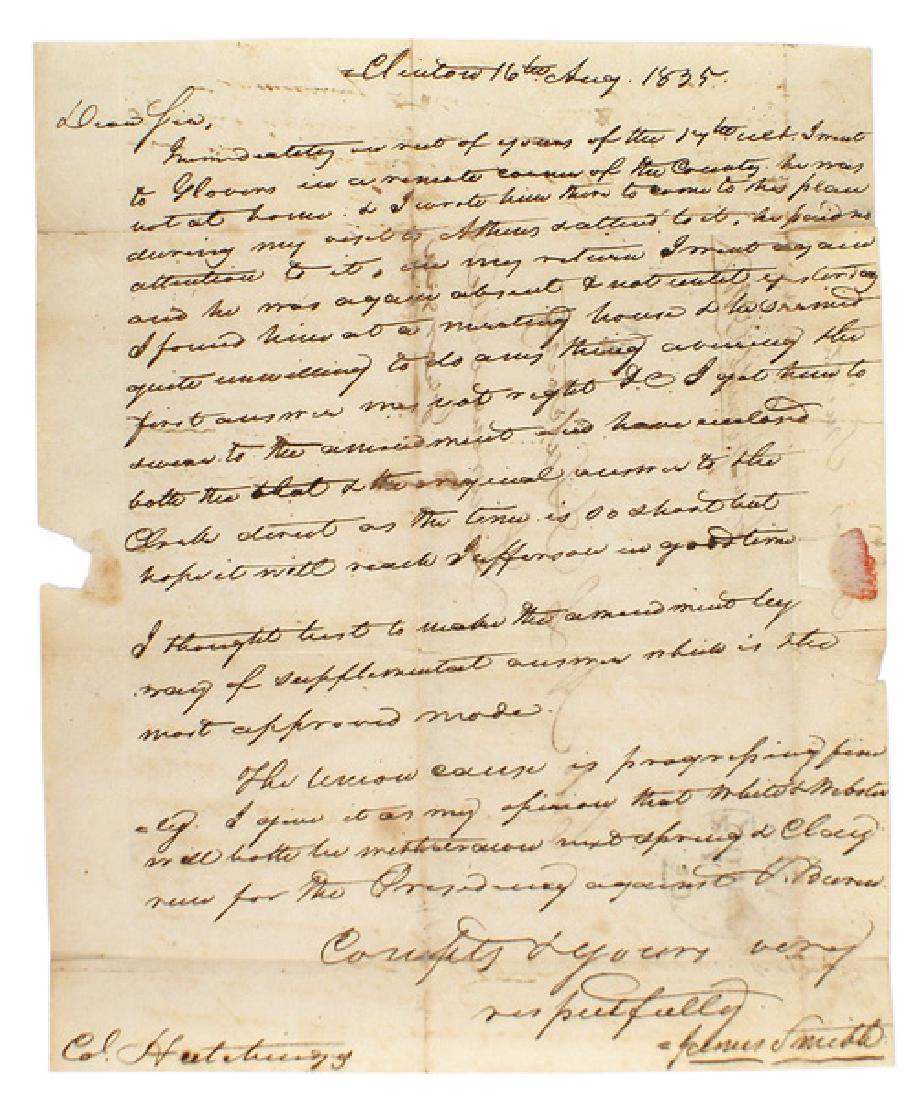 Clinton 16th Aug. 1835.
Dear Sir,
Immediately on rct of yours of the 17th ult. I went
to Glovers in a remote corner of the County. he was
not at home & I wrote him then to come to this place
during my visit to Athens & attend to it, he paid no
attention to it, on my return I went again
and he was again absent & not until yesterday
I found him at a meeting house & he seemed
quite unwilling to do any thing avering the
first answer was not right &c I got him to
swear to the amendment and have enclosd
both the that & the original answer to the
Clerk direct as the time is so short but
hope it will reach Jefferson in good time
I thought best to make the amendment by
way of supplemental answer which is the
most approved mode.
The Union cause is progressing fine
=ly. I give it as my opinion that White & Webster
will both be withdrawn next spring & Clay
run for the Presidency against V. Buren
Complts & Yours very
respectfully
=James Smith
Col. Hutchings